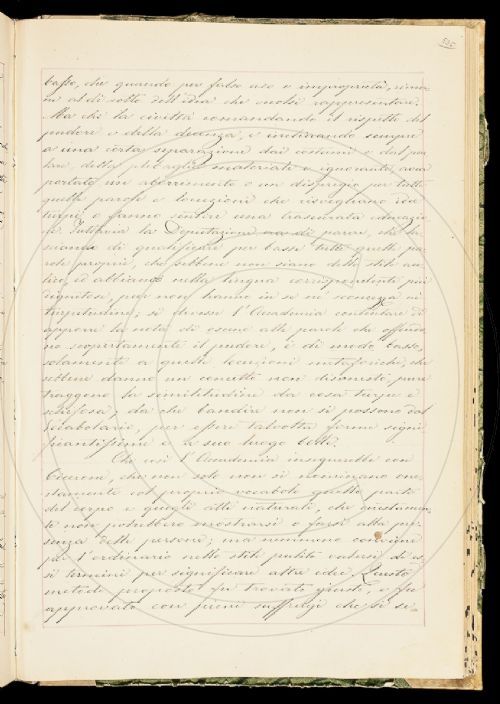 535
basso, che quando per falso uso o improprietà, riman
ni al di sotto dell'idea che vuolsi rappresentare.
Ma che la civiltà comandando il rispetto del
pudore e della decenza, e inclinando sempre
a una certa separazione dai costumi e dal par
lare della plebaglia materiale e ignorante, avea
portato un aborrimento o un dispregio per tutte
quelle parole e locuzioni che risvegliano idee
turpi o fanno sentire una trascurata educazio
ne. Tuttavia la Deputazione parer, che la
sciando di qualificare per basse tutte quelle pa
role proprie, che sebbene non siano dello stile au
lico, ed abbiano nella lingua corrispondente più
dignitose, pure non hanno in sé né sconcezza né
turpitudine; si dovesse l'Accademia contentare di
apporre la nota di oscene alle parole che offendo
no scopertamente il pudore, e di modo basso,
solamente a quelle locuzioni metaforiche, che
sebbene danno un concetto non disonesto, pure
traggono la similitudine da cosa turpe e
schifosa; da che bandire non si possono dal
Vocabolario, per esser talvolta forme signi
ficantissime e a suo luogo belle.
Che così l'Accademia insegnerebbe con
Cicerone, che non solo non si nominano one
stamente col proprio vocabolo quelle parti
del corpo e quegli atti naturali, che giustamen
te non potrebbero mostrarsi o farsi alla pre
senza delle persone; ma nemmeno conviene
per l'ordinario nello stile pulito valersi di es
si termini per significare altre idee. Questo
metodo proposto fu trovato giusto, e fu
approvato con pieni suffragi che si se